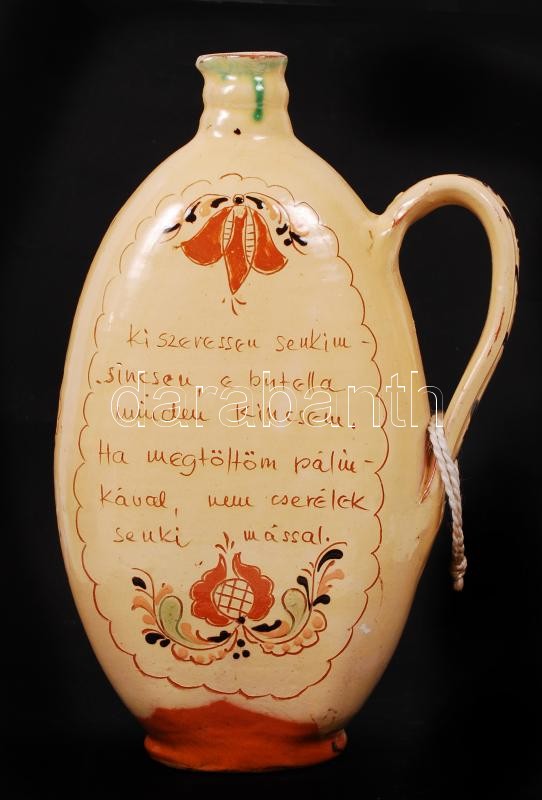 Ki szeressen senkim-
sincsen, e butella
minden Kincsem.
darabanth
Ha megtöltöm pálin-
kával, nem cserélek
senki mással.